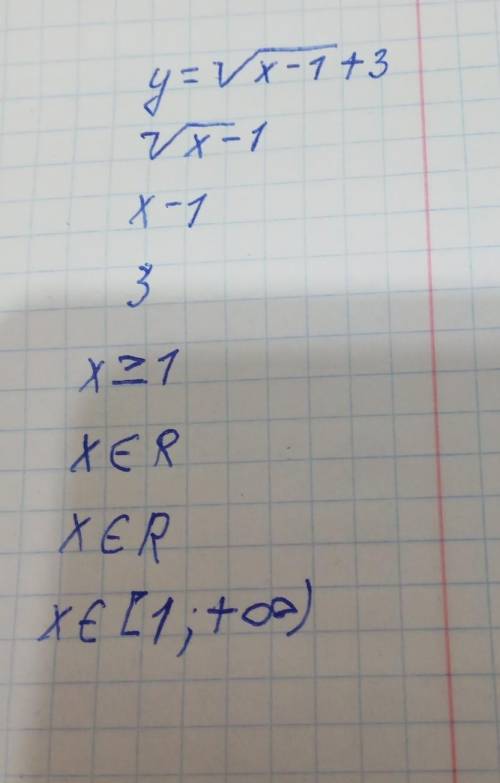 y = √x-1 + 3
√x-1
x-1
3
x ≥ 1
x ∈ R
x ∈ R
x ∈ [1; +∞)